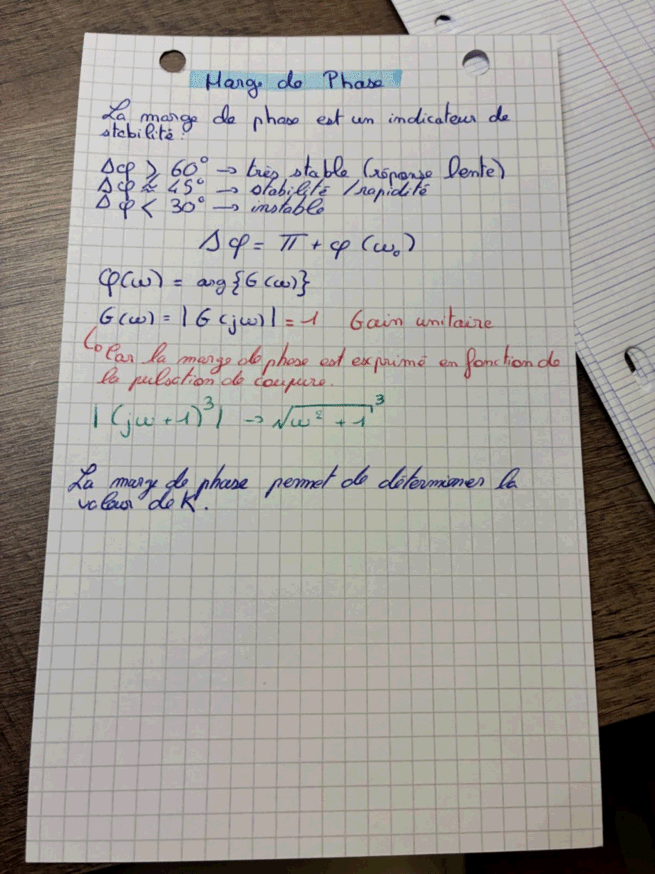 Marge de Phase
La marge de phase est un indicateur de
stabilité.
Δφ ⩾ 60° → très stable (réponse lente)
Δφ ≈ 45° → stabilité / rapidité
Δφ < 30° → instable
Δφ = π + φ(ω₀)
φ(ω) = arg{G(ω)}
G(ω) = |G(jω)| = 1 Gain unitaire
↳ Car la marge de phase est exprimé en fonction de
la pulsation de coupure.
|(jω + 1)³| → √(ω² + 1)³
La marge de phase permet de déterminer la
valeur de K.